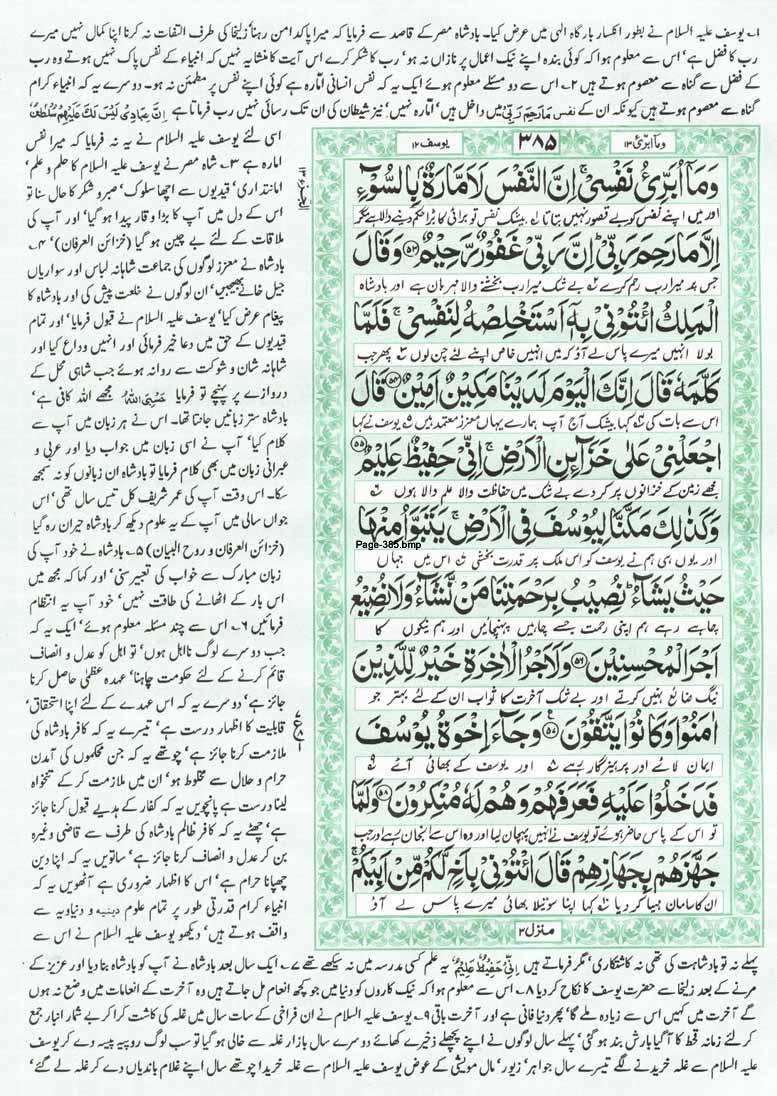 ۱؎ یوسف علیہ السلام نے بطور انکسار بارگاہ الٰہی میں عرض کیا۔ بادشاہ مصر کے قاصد سے فرمایا کہ میرا پاکدامن رہنا‘ زلیخا کی طرف التفات نہ کرنا اپنا کمال نہیں میرے
رب کا فضل ہے‘ اس سے معلوم ہوا کہ کوئی بندہ اپنے نیک اعمال پر نازاں نہ ہو‘ رب کا شکر کرے اس آیت کا منشایہ نہیں کہ انبیاء کے نفس پاک نہیں ہوتے وہ رب
کے فضل سے گناہ سے معصوم ہوتے ہیں ۲؎ اس سے دو مسئلے معلوم ہوئے ایک یہ کہ نفس انسانی امارہ ہے کوئی اپنے نفس پر مطمئن نہ ہو۔ دوسرے یہ کہ انبیاء کرام
گناہ سے معصوم ہوتے ہیں کیونکہ ان کے نفس مَارَحِمَ رَبِّیْ میں داخل ہیں‘ امارہ نہیں‘ نیز شیطان کی ان تک رسائی نہیں رب فرماتا ہے اِنَّ عِبَادِیْ لَیْسَ لَكَ عَلَیْهِمْ سُلْطٰنٌ
اسی لئے یوسف علیہ السلام نے یہ نہ فرمایا کہ میرا نفس
امارہ ہے ۳؎ شاہ مصر نے یوسف علیہ السلام کا حلم و علم‘
امانتداری‘ قیدیوں سے اچھا سلوک‘ صبر و شکر کا حال سنا تو
اس کے دل میں آپ کا بڑا وقار پیدا ہو گیا‘ اور آپ کی
ملاقات کے لئے بے چین ہو گیا (خزائن العرفان) ۴؎
بادشاہ نے معزز لوگوں کی جماعت شاہانہ لباس اور سواریاں
جیل خانے بھیجیں‘ ان لوگوں نے خلعت پیش کی اور بادشاہ کا
پیغام عرض کیا‘ یوسف علیہ السلام نے قبول فرمایا‘ اور تمام
قیدیوں کے حق میں دعا خیر فرمائی اور انہیں وداع کیا اور
شاہانہ شان و شوکت سے روانہ ہوئے جب شاہی محل کے
دروازے پر پہنچے تو فرمایا حَسْبِیَ اللّٰهُ مجھے اللہ کافی ہے‘
بادشاہ ستر زبانیں جانتا تھا۔ اس نے ہر زبان میں آپ سے
کلام کیا‘ آپ نے اسی زبان میں جواب دیا اور عربی و
عبرانی زبان میں بھی کلام فرمایا تو بادشاہ ان زبانوں کو نہ سمجھ
سکا۔ اس وقت آپ کی عمر شریف کل تیس سال تھی‘ اس
جواں سالی میں آپ کے یہ علوم دیکھ کر بادشاہ حیران رہ گیا
(خزائن العرفان و روح البیان) ۵؎ بادشاہ نے خود آپ کی
زبان مبارک سے خواب کی تعبیر سنی‘ اور کہا کہ مجھ میں
اس بار کے اٹھانے کی طاقت نہیں‘ خود آپ یہ انتظام
فرمائیں ۶؎ اس سے چند مسئلہ معلوم ہوئے‘ ایک یہ کہ
جب دوسرے لوگ نااہل ہوں‘ تو اہل کو عدل و انصاف
قائم کرنے کے لئے حکومت چاہنا‘ عہدہ عظمیٰ حاصل کرنا
جائز ہے‘ دوسرے یہ کہ اس عہدے کے لئے اپنا استحقاق‘
قابلیت کا اظہار درست ہے‘ تیسرے یہ کہ کافر بادشاہ کی
ملازمت کرنا جائز ہے‘ چوتھے یہ کہ جن محکموں کی آمدن
حرام و حلال سے مخلوط ہو‘ ان میں ملازمت کر کے تنخواہ
لینا درست ہے پانچویں یہ کہ کفار کے ہدیے قبول کرنا جائز
ہے‘ چھٹے یہ کہ کافر ظالم بادشاہ کی طرف سے قاضی وغیرہ
بن کر عدل و انصاف کرنا جائز ہے‘ ساتویں یہ کہ اپنا دین
چھپانا حرام ہے‘ اس کا اظہار ضروری ہے آٹھویں یہ کہ
انبیاء کرام قدرتی طور پر تمام علوم دینیہ و دنیاویہ سے
واقف ہوتے ہیں‘ دیکھو یوسف علیہ السلام نے اس سے
وما ابرئ ۱۳
۳۸۵
یوسف ۱۲
وَمَآ اُبَرِّئُ نَفْسِیْ ۚ اِنَّ النَّفْسَ لَاَمَّارَةٌۢ بِالسُّوْٓءِ
اور میں اپنے نفس کو بے قصور نہیں بتاتا ۱؎ بیشک نفس تو برائی کا بڑا حکم دینے والا ہے مگر
اِلَّا مَا رَحِمَ رَبِّیْ ؕ اِنَّ رَبِّیْ غَفُوْرٌ رَّحِیْمٌ ۝۵۳ وَقَالَ
جس پر میرا رب رحم کرے ۲؎ بے شک میرا رب بخشنے والا مہربان ہے اور بادشاہ
الْمَلِكُ ائْتُوْنِیْ بِهٖٓ اَسْتَخْلِصْهُ لِنَفْسِیْ ۚ فَلَمَّا
بولا انہیں میرے پاس لے آؤ کہ میں انہیں خاص اپنے لئے چن لوں ۳؎ پھر جب
كَلَّمَهٗ قَالَ اِنَّكَ الْیَوْمَ لَدَیْنَا مَكِیْنٌ اَمِیْنٌ ۝۵۴ قَالَ
اس سے بات کی ۴؎ کہا بیشک آج آپ ہمارے یہاں معزز معتمد ہیں ۵؎ یوسف نے کہا
اجْعَلْنِیْ عَلٰی خَزَآئِنِ الْاَرْضِ ۚ اِنِّیْ حَفِیْظٌ عَلِیْمٌ ۝۵۵
مجھے زمین کے خزانوں پر کر دے بے شک میں حفاظت والا علم والا ہوں ۶؎
وَكَذٰلِكَ مَكَّنَّا لِیُوْسُفَ فِی الْاَرْضِ ۚ یَتَبَوَّاُ مِنْهَا
Page-385.bmp
اور یوں ہی ہم نے یوسف کو اس ملک پر قدرت بخشی ۷؎ اس میں جہاں
حَیْثُ یَشَآءُ ؕ نُصِیْبُ بِرَحْمَتِنَا مَنْ نَّشَآءُ وَلَا نُضِیْعُ
چاہے رہے ہم اپنی رحمت جسے چاہیں پہنچائیں اور ہم نیکوں کا
اَجْرَ الْمُحْسِنِیْنَ ۝۵۶ وَلَاَجْرُ الْاٰخِرَةِ خَیْرٌ لِّلَّذِیْنَ
نیگ ضائع نہیں کرتے اور بے شک آخرت کا ثواب ان کے لئے بہتر جو
اٰمَنُوْا وَكَانُوْا یَتَّقُوْنَ ۝۵۷ وَجَآءَ اِخْوَةُ یُوْسُفَ
ایمان لائے اور پرہیزگار رہے ۸؎ اور یوسف کے بھائی آئے ۹؎
فَدَخَلُوْا عَلَیْهِ فَعَرَفَهُمْ وَهُمْ لَهٗ مُنْكِرُوْنَ ۝۵۸ وَلَمَّا
تو اس کے پاس حاضر ہوئے تو یوسف نے انہیں پہچان لیا اور وہ اس سے انجان رہے اور جب
جَهَّزَهُمْ بِجَهَازِهِمْ قَالَ ائْتُوْنِیْ بِاَخٍ لَّكُمْ مِّنْ اَبِیْكُمْ ۚ
ان کا سامان مہیا کر دیا کہا اپنا سوتیلا بھائی میرے پاس لے آؤ
منزل ۳
پہلے نہ تو بادشاہت کی تھی نہ کاشتکاری‘ مگر فرماتے ہیں اِنِّیْ حَفِیْظٌ عَلِیْمٌ یہ علم کسی مدرسہ میں نہ سیکھے تھے ۷؎ ایک سال بعد بادشاہ نے آپ کو بادشاہ بنا دیا اور عزیز کے
مرنے کے بعد زلیخا سے حضرت یوسف کا نکاح کر دیا ۸؎ اس سے معلوم ہوا کہ نیک کاروں کو دنیا میں جو کچھ انعام مل جاتے ہیں وہ آخرت کے انعامات میں وضع نہ ہوں
گے آخرت میں کہیں اس سے زیادہ ملے گا‘ پھر دنیا فانی ہے اور آخرت باقی ۹؎ یوسف علیہ السلام نے ان فراخی کے سات سال میں غلہ کی کاشت کرا کر بے شمار انبار جمع
کر لئے زمانہ قحط کا آ گیا بارش بند ہو گئی‘ پہلے سال لوگوں نے اپنے پچھلے ذخیرے کھائے دوسرے سال بازار غلہ سے خالی ہو گیا تو سب لوگ روپیہ پیسہ دے کر یوسف
علیہ السلام سے غلہ خریدنے لگے تیسرے سال جواہر‘ زیور‘ مال مویشی کے عوض یوسف علیہ السلام سے غلہ خریدا چوتھے سال اپنے غلام باندیاں دے کر غلہ لے گئے‘